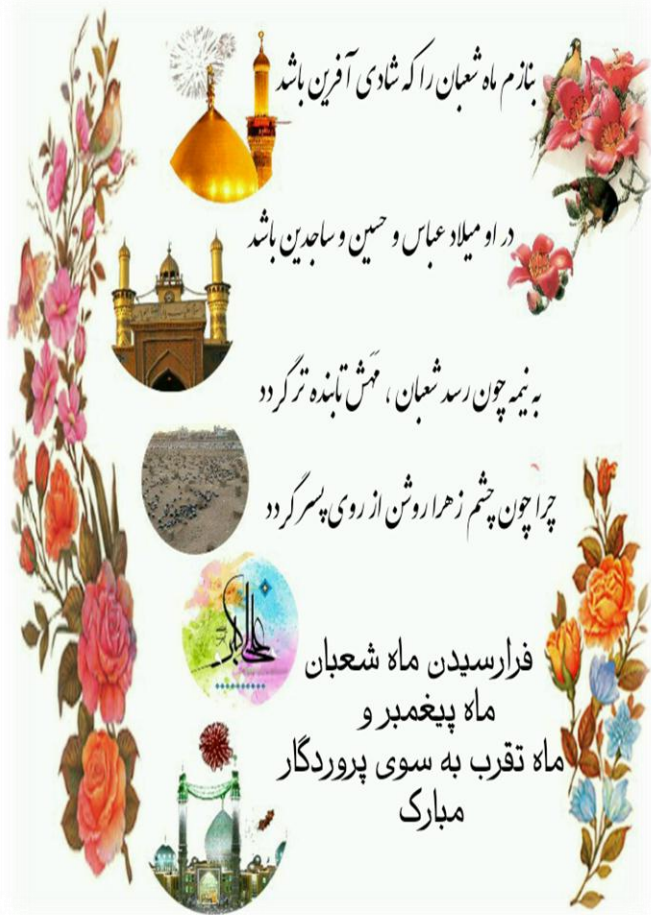 بنازم ماه شعبان را که شادی آفرین باشد
در او میلاد عباس و حسین و ساجدین باشد
به نیمه چون رسد شعبان ، مَهَش تابنده تر گردد
چرا چون چشم زهرا روشن از روی پسر گردد
علی اکبر
فرارسیدن ماه شعبان
ماه پیغمبر و
ماه تقرب به سوی پروردگار
مبارک